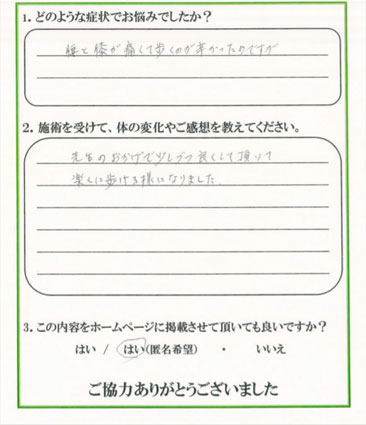 1. どのような症状でお悩みでしたか？
腰と膝が痛くて歩くのが辛かったのですが
2. 施術を受けて、体の変化やご感想を教えてください。
先生のおかげで少しづつ良くして頂いて
楽に歩ける様になりました。
3. この内容をホームページに掲載させて頂いても良いですか？
はい / はい(匿名希望) ・ いいえ
ご協力ありがとうございました